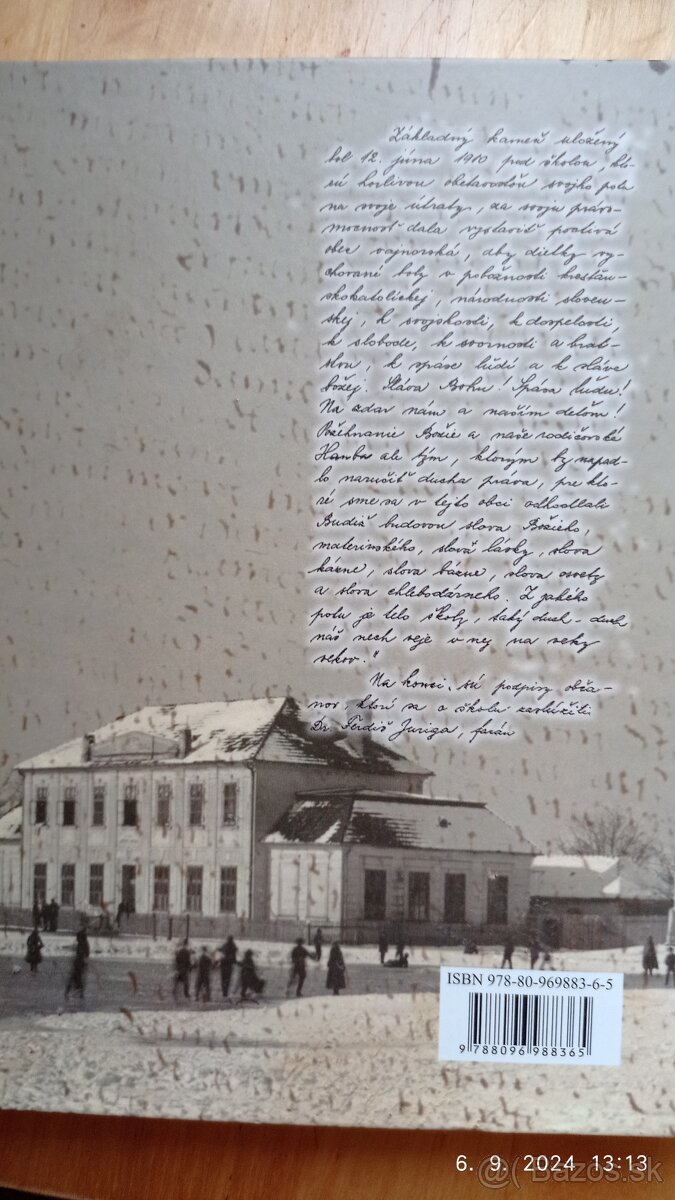 Základný kameň uložený
bol 12. júna 1910 pod školou,
sú horlivou obetavosťou svojho
na svoje útraty, za svoju právo-
mocnosť dala vystaviť poctivá
obec vajnorská, aby dietky vy-
chované boly v pobožnosti kresťan-
skokatolíckej, národnosti sloven-
skej, k svojskosti, k dospelosti,
k slobode, k svornosti a brat-
stvu, k spáse ľudí a k sláve
božej. Sláva Bohu! Spása ľudu!
Na zdar nám a naším deťom!
Požehnanie Božie a naše rodičovské
Hanba ale tým, ktorým by napad-
lo narušiť ducha práva, pre kto-
ré sme sa v tejto obci odhodlali
Budiž budovou slova Božieho,
materinského, slova lásky, slova
kázne, slova bázne, slova osvety
a slova chlebodárneho. Z jakého
potu je telo školy, taký duch - duch
náš nech veje v nej na veky
vekov."
Na konci sú podpisy obča-
nov, ktorí sa o školu zaslúžili:
Dr. Ferdiš Juriga, farár
ISBN 978-80-969883-6-5
9 788096 988365
6. 9. 2024 13:13
@Bazos.sk